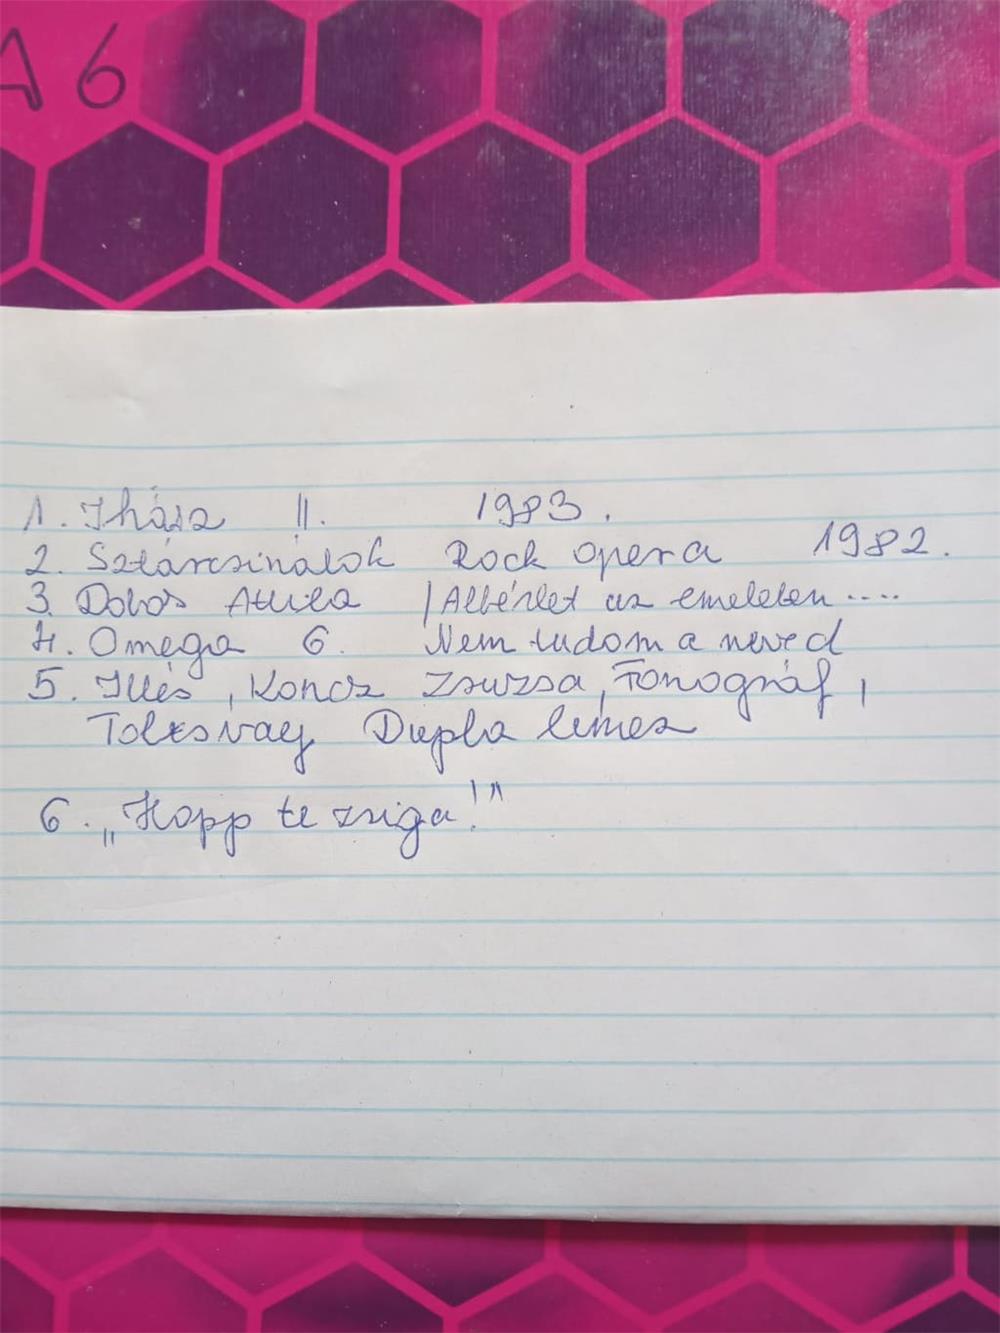 A6
1. Ihász II. 1983.
2. Sztárcsinálok Rock opera 1982.
3. Dobos Attila /Albérlet az emeleten.....
4. Omega 6. Nem tudom a neved
5. Illés, Koncz Zsuzsa, Fonográf,
Tolcsvay Dupla lemez
6. „Hopp te zsiga!"